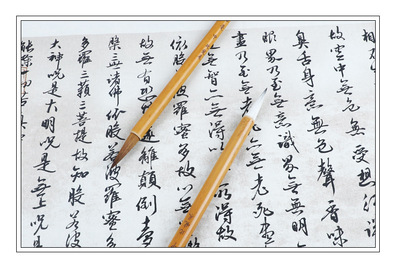 相
故空中無色無受想行識
鼻舌身意無色聲香味
眼界乃至無意識界無無明
盡乃至無老死無老死盡
無智亦無得以無所得故
依般羅蜜多故心無
故無有遠離顛倒夢
槃三世諸佛依般若波羅蜜多
多羅三藐三菩提故知般若波
大神咒是大明咒是無上咒是
能除一切苦